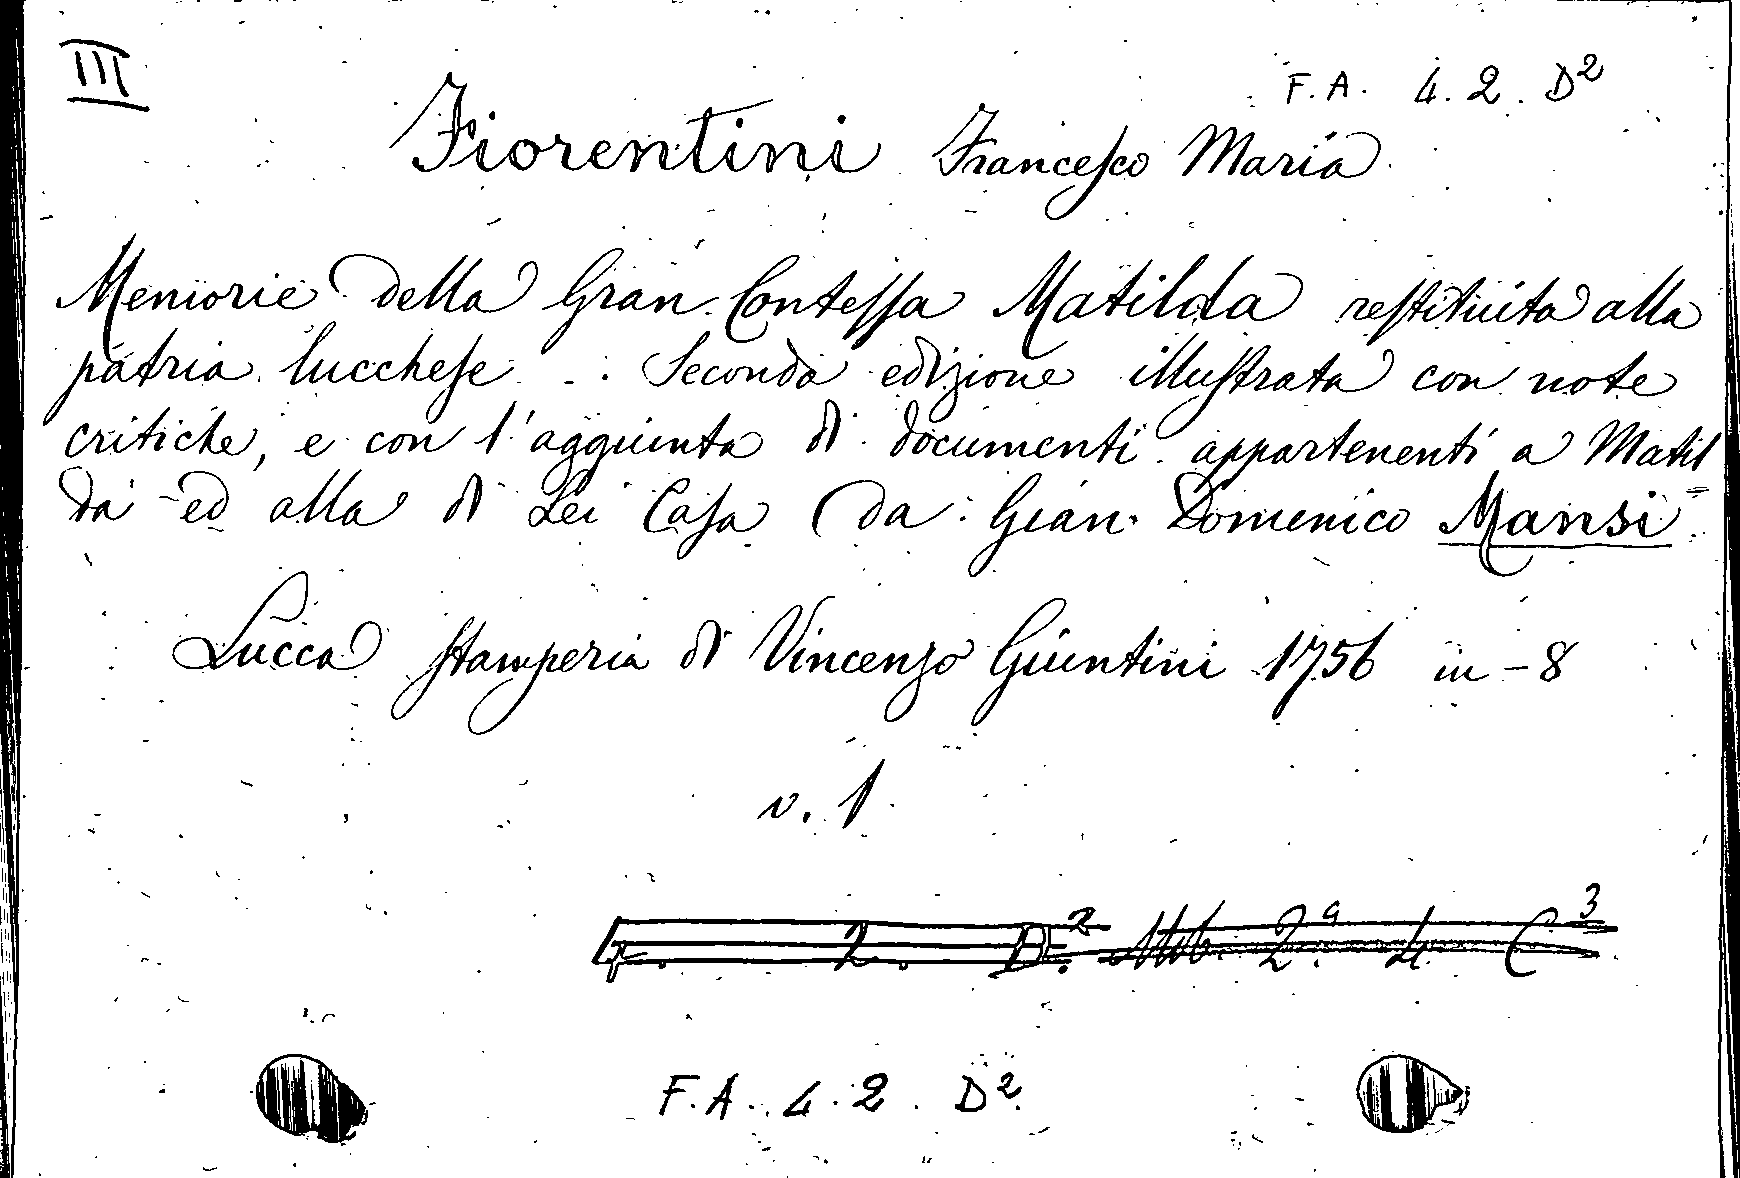 III
F.A. 4.2. D²
Fiorentini Francesco Maria
Memorie della Gran Contessa Matilda restituita alla
patria lucchese ... Seconda edizione illustrata con note
critiche, e con l'aggiunta di documenti appartenenti a Matil
da ed alla di Lei Casa (da Gian Domenico Mansi
Lucca stamperia di Vincenzo Giuntini 1756 in-8
v. 1
2. D.² 2ª 4. C³
F.A. 4.2. D²